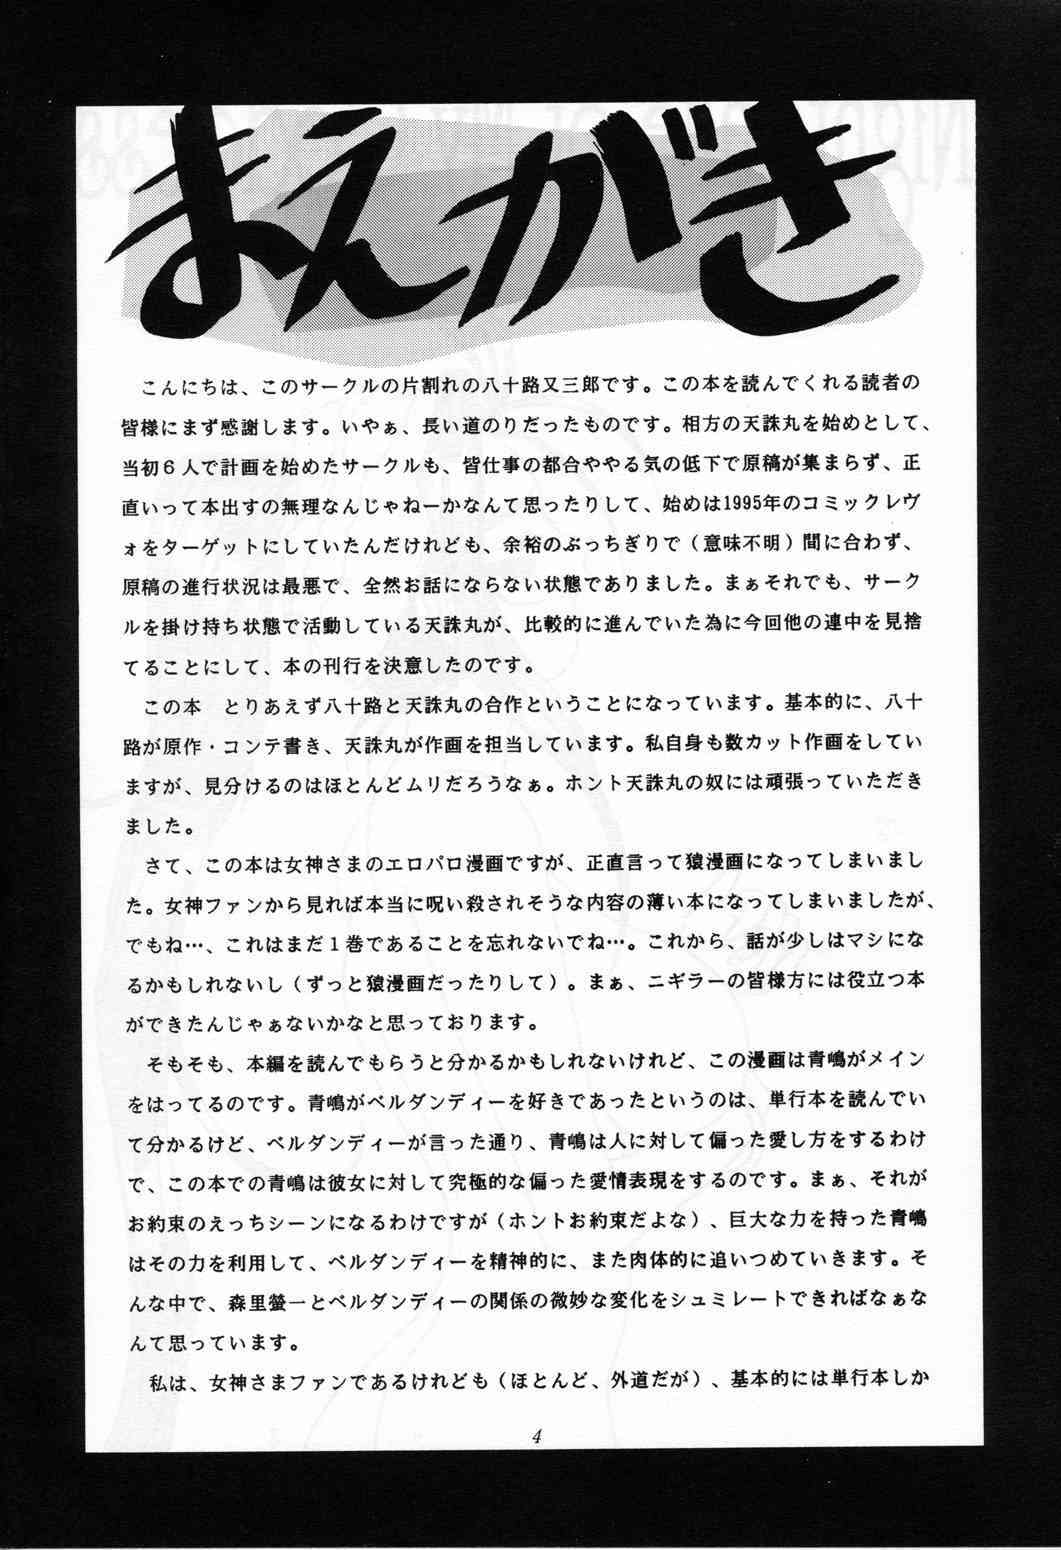 まえがき
こんにちは、このサークルの片割れの八十路又三郎です。この本を読んでくれる読者の
皆様にまず感謝します。いやぁ、長い道のりだったものです。相方の天誅丸を始めとして、
当初６人で計画を始めたサークルも、皆仕事の都合ややる気の低下で原稿が集まらず、正
直いって本出すの無理なんじゃねーかなんて思ったりして、始めは1995年のコミックレヴ
ォをターゲットにしていたんだけれども、余裕のぶっちぎりで（意味不明）間に合わず、
原稿の進行状況は最悪で、全然お話にならない状態でありました。まぁそれでも、サーク
ルを掛け持ち状態で活動している天誅丸が、比較的に進んでいた為に今回他の連中を見捨
てることにして、本の刊行を決意したのです。
この本　とりあえず八十路と天誅丸の合作ということになっています。基本的に、八十
路が原作・コンテ書き、天誅丸が作画を担当しています。私自身も数カット作画をしてい
ますが、見分けるのはほとんどムリだろうなぁ。ホント天誅丸の奴には頑張っていただき
ました。
さて、この本は女神さまのエロパロ漫画ですが、正直言って猿漫画になってしまいまし
た。女神ファンから見れば本当に呪い殺されそうな内容の薄い本になってしまいましたが、
でもね…、これはまだ１巻であることを忘れないでね…。これから、話が少しはマシにな
るかもしれないし（ずっと猿漫画だったりして）。まぁ、ニギラーの皆様方には役立つ本
ができたんじゃぁないかなと思っております。
そもそも、本編を読んでもらうと分かるかもしれないけれど、この漫画は青嶋がメイン
をはってるのです。青嶋がベルダンディーを好きであったというのは、単行本を読んでい
て分かるけど、ベルダンディーが言った通り、青嶋は人に対して偏った愛し方をするわけ
で、この本での青嶋は彼女に対して究極的な偏った愛情表現をするのです。まぁ、それが
お約束のえっちシーンになるわけですが（ホントお約束だよな）、巨大な力を持った青嶋
はその力を利用して、ベルダンディーを精神的に、また肉体的に追いつめていきます。そ
んな中で、森里螢一とベルダンディーの関係の微妙な変化をシュミレートできればなぁな
んて思っています。
私は、女神さまファンであるけれども（ほとんど、外道だが）、基本的には単行本しか
4